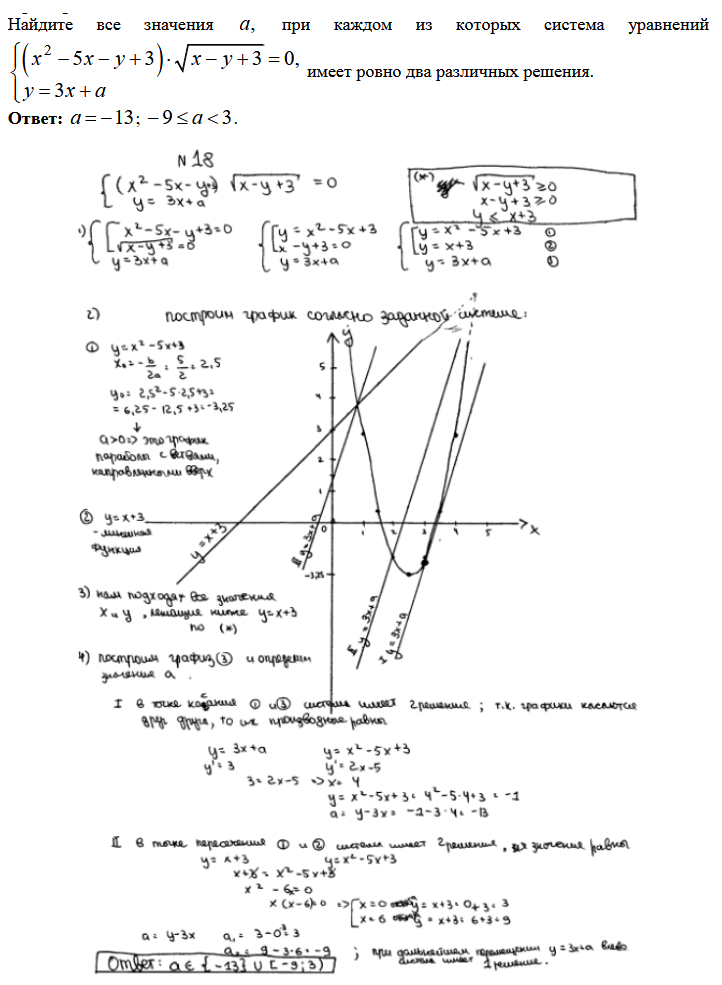 Найдите все значения a, при каждом из которых система уравнений
{(x² − 5x − y + 3) · √(x − y + 3) = 0,
y = 3x + a
имеет ровно два различных решения.
Ответ: a = −13; −9 ≤ a < 3.
N 18
{(x² − 5x − y+3) √(x−y+3) = 0
y = 3x+a
(*) √(x−y+3) ≥ 0
x−y+3 ≥ 0
y ≤ x+3
1) {[x² − 5x − y+3=0
√(x−y+3) = 0
y=3x+a
{[y = x² − 5x+3
x − y+3 = 0
y = 3x+a
{[y = x² − 5x+3 ①
y = x+3 ②
y = 3x+a
2) построим график согласно заданной системе:
① y = x² − 5x+3
x₀ = −b/2a = 5/2 = 2,5
y₀ = 2,5² − 5·2,5+3 =
= 6,25 − 12,5+3 = −3,25
↓
a>0 => это график
параболы с ветвями,
направленными вверх
② y = x+3
- линейная
функция
y
5
4
3
2
1
0
1
2
3
4
5
x
−3,25
y = x+3
III y = 3x+a
II y = 3x+a
I y = 3x+a
3) нам подходят все значения
x и y, лежащие ниже y = x+3
по (*)
4) построим график ③ и определим
значение a.
I в точке касания ① и ③ система имеет 2 решение; т.к. графики касаются
друг друга, то их производные равны
y = 3x+a y = x² − 5x+3
y' = 3 y' = 2x−5
3 = 2x−5 => x = 4
y = x² − 5x+3 = 4² − 5·4+3 = −1
a = y−3x = −1−3·4 = −13
II в точке пересечения ① и ② система имеет 2 решения, значение равны
y = x+3 y = x² − 5x+3
x+3 = x² − 5x+3
x² − 6x = 0
x(x−6) = 0 => [x = 0 y = x+3 = 0+3 = 3
x = 6 y = x+3 = 6+3 = 9
a = y−3x a₁ = 3−0 = 3
a₂ = 9−3·6 = −9 ; при дальнейшем перемещении y=3x+a влево
система имеет 1 решение.
Ответ: a ∈ {−13} ∪ [−9; 3)